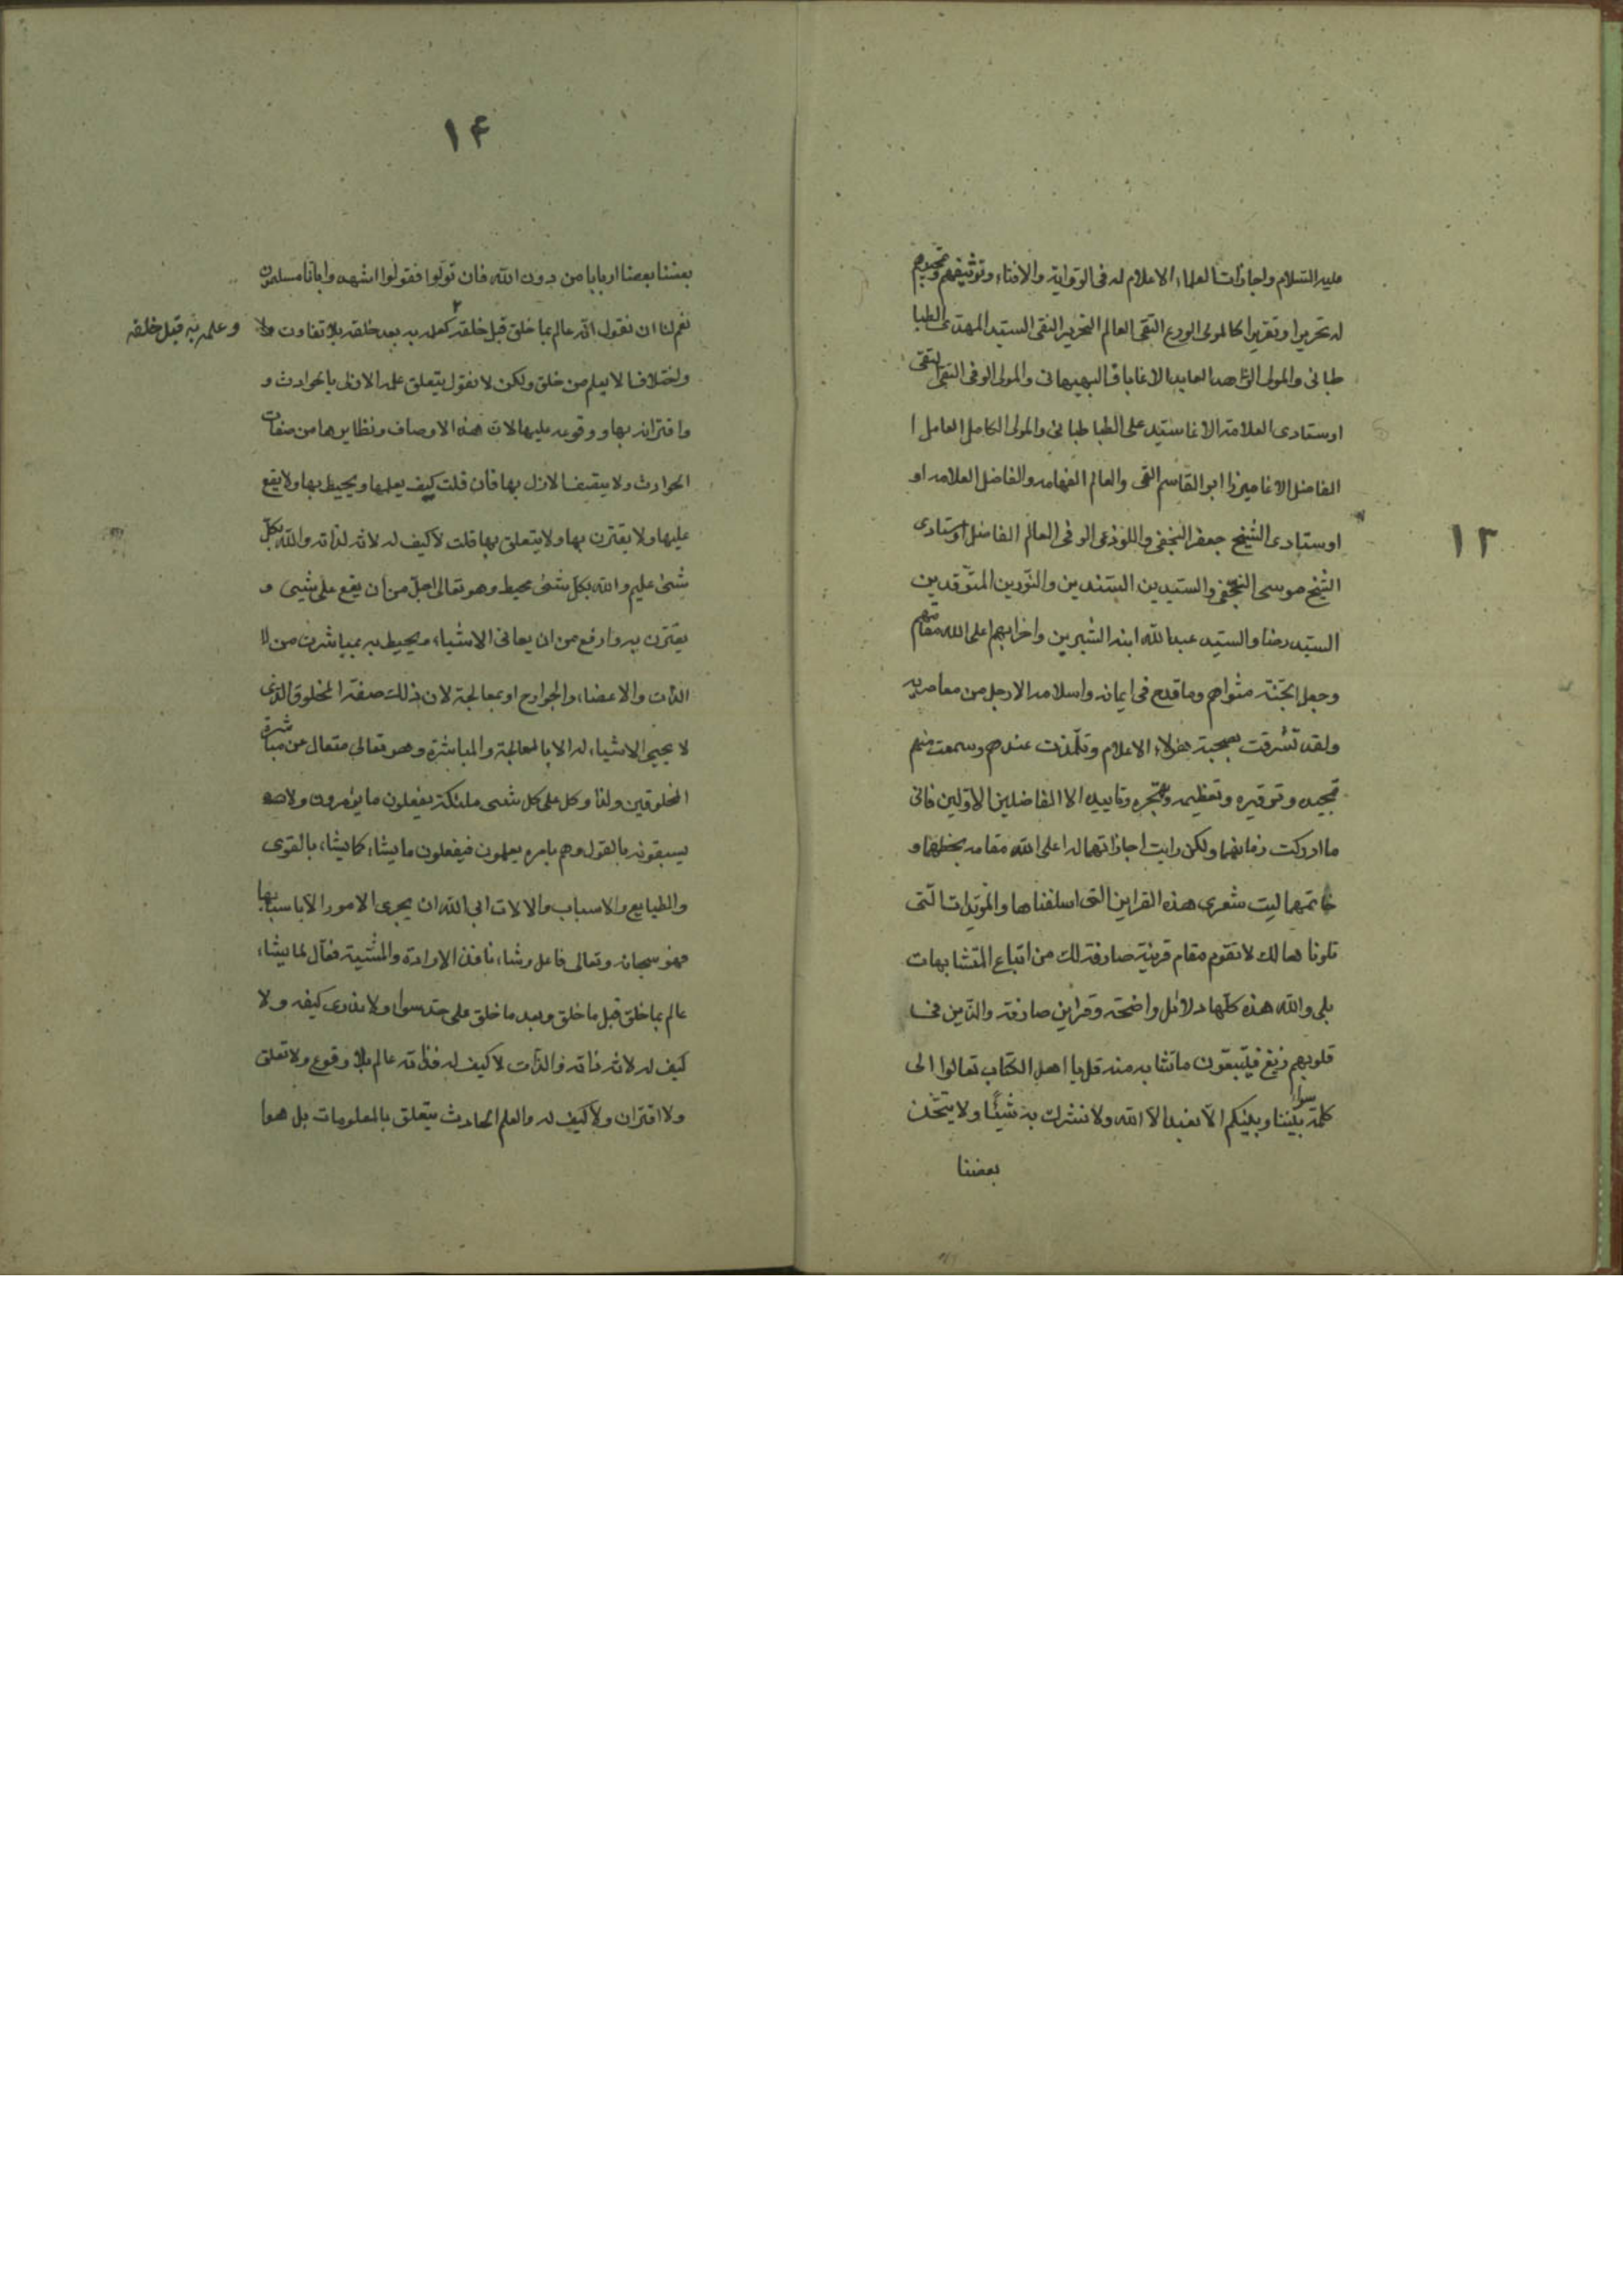 ١٣
عليه السلام واجازات العلماء الاعلام له فى الرواية والافتاء وتوثيقهم وتمجيدهم
له تحريرا وتقريرا كالمولى الورع التقى العالم النحرير النقى السيد المهدى الطبا
طبائى والمولى الزاهد العابد الاغا باقر البهبهانى والمولى الوفى النقى التقى
اوستادى العلامة الاغا سيد على الطباطبائى والمولى الكامل العامل ا
الفاضل الاغا ميرزا ابو القاسم القمى والعالم الفهامه والفاضل العلامه او
اوستادى الشيخ جعفر النجفى واللوذعى الوفى العالم الفاضل اوستادى
الشيخ موسى النجفى والسيدين السندين والنورين المتوقدين
السيد رضا والسيد عبدالله ابنه الشبرين واضرابهم اعلى الله مقامهم
وجعل الجنة مثواهم وما قدح فى ايمانه واسلامه الا رجل من معاصريه
ولقد تشرفت بصحبة هؤلاء الاعلام وتلمذت عندهم وسمعت منهم
تمجيده وتوقيره وتعظيمه وتبحره وتاييده الا الفاضلين الاولين فانى
ما ادركت زمانهما ولكن رايت اجازاتهما له اعلى الله مقامه بخطهما و
خاتمهما ليت شعرى هذه القراين التى اسلفناها والمؤيدات التى
تلونا هالك لا تقوم مقام قرينة صارفة لك من اتباع المتشابهات
بلى والله هذه كلها دلائل واضحة وقراين صارفة والذين فى
قلوبهم زيغ فيتبعون ما تشابه منه قل يا اهل الكتاب تعالوا الى
كلمة سواء بيننا وبينكم الا نعبد الا الله ولا نشرك به شيئا ولا يتخذ
بعضنا
١۴
بعضنا بعضا اربابا من دون الله فان تولوا فقولوا اشهدوا بانا مسلمون
نعم لنا ان نقول انه عالم بما خلق قبل خلقه كعلمه به بعد خلقه بلا تفاوت ولا
وعلمه به قبل خلقه
واختلاف الا يعلم من خلق ولكن لا نقول يتعلق علمه الازلى بالحوادث و
واقترانه بها ووقوعه عليها لان هذه الاوصاف ونظايرها من صفات
الحوادث ولا يتصف الازل بها فان قلت كيف يعلمها ويحيط بها ولا يقع
عليها ولا يقترن بها ولا يتعلق بها قلت لا كيف له لانه لذاته والله بكل
شىء عليم والله بكل شىء محيط وهو تعالى اجل من ان يقع على شيىء و
يقترن به وارفع من ان يعانى الاشياء ويحيط به بمباشرت من لا
الذات والاعضاء والجوارح او بمعالجة لان ذلك صفة المخلوق الذى
لا يجيىء الاشياء له الا بالمعالجة والمباشرة وهو تعالى متعال عن مباشرة
المخلوقين ولذا وكل على كل شىء ملئكة يفعلون ما يؤمرون ولا هم
يسبقونه بالقول وهم بامره يعملون فيفعلون ما يشاء كما يشاء بالقوى
والطبايع والاسباب والالات ابى الله ان يجرى الامور الا باسبابها
فهو سبحانه وتعالى فاعل يشاء نافذ الارادة والمشية فعال لما يشاء
عالم بما خلق قبل ما خلق وبعد ما خلق على حد سواء ولا ندرى كيفه ولا
كيف له لانه ذاته والذات لا كيف له فذاته عالم بلا وقوع ولا تعلق
ولا اقتران ولا كيف له والعلم الحادث يتعلق بالمعلومات بل هوا